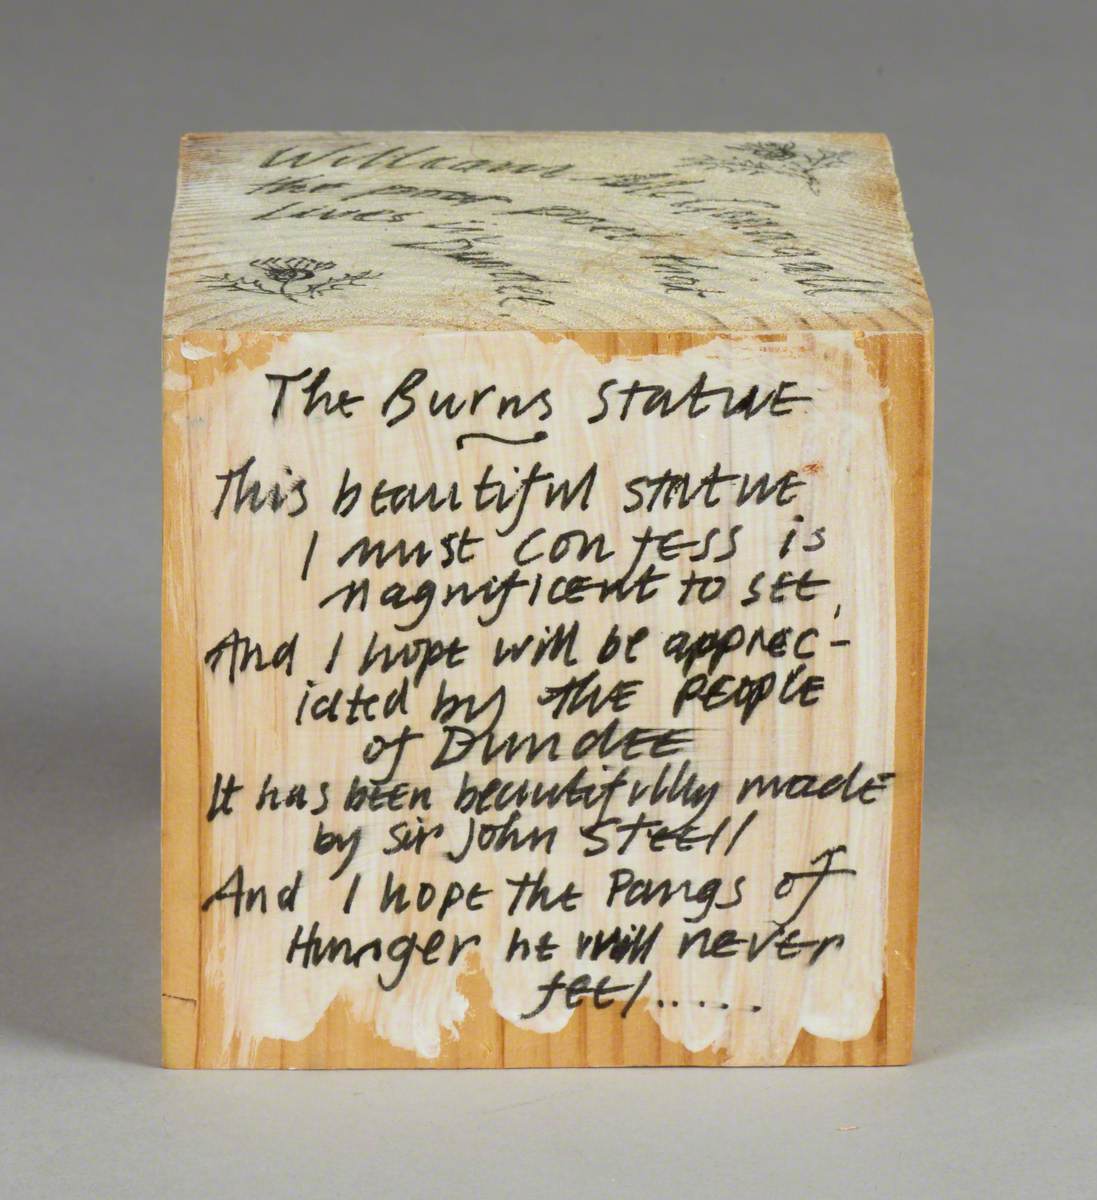 William McGonagall
the poor poet that
lives in Dundee.
The Burns Statue
This beautiful statue
I must confess is
magnificent to see,
And I hope will be apprec-
iated by the people
of Dundee
It has been beautifully made
by Sir John Steell
And I hope the Pangs of
Hunger he will never
feel.....